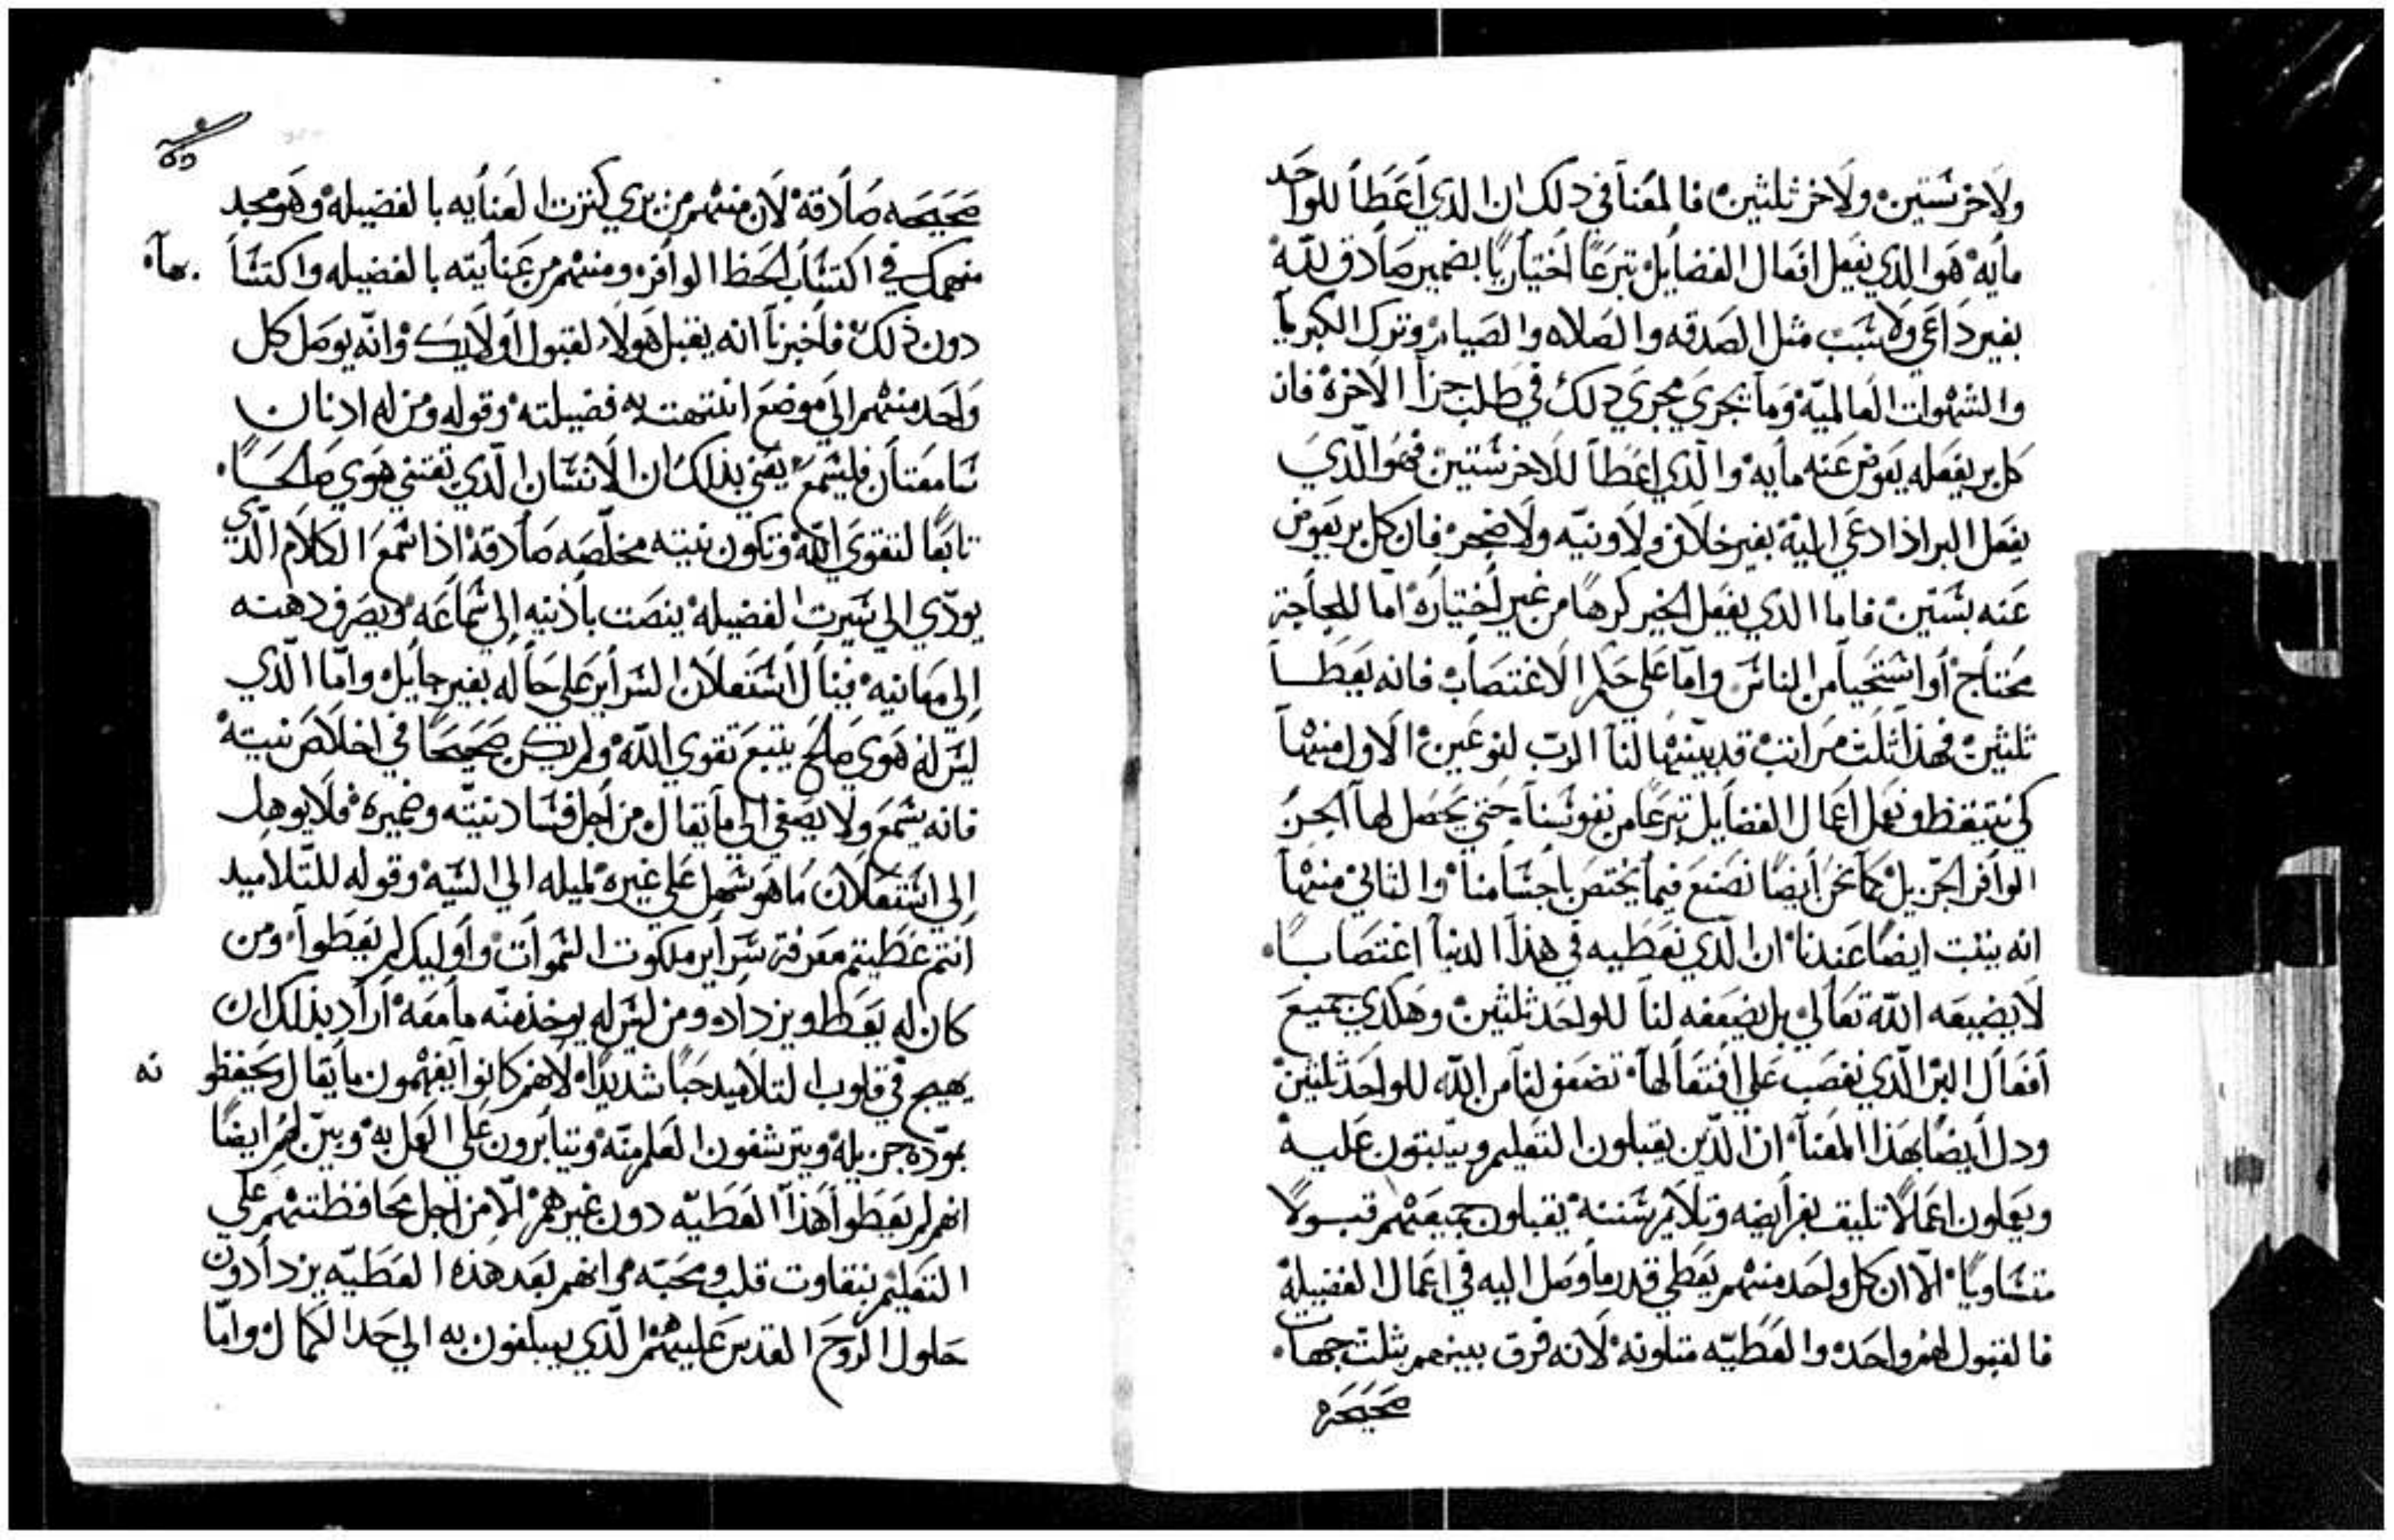 ولاخر ستين ولاخر ثلثين فالمعنا في دلك ان الدي اعطا للواحد
مايه هو الدي يفعل افعال الفضايل تبرعًا اختياريًا بضمير صادق لله
بغير داعي ولا سبب مثل الصدقه والصلاه والصيام وترك الكبريا
والشهوات العالميه وما يجري مجري دلك في طلب جزا الاخرة فان
كل بر يفعله يعوض عنه مايه والدي اعطا للاخر ستين فهو الدي
يفعل البر اذا دعي اليه بغير خلاف ولا ونيه ولا ضجر فان كل بر يعوض
عنه بستين فاما الدي يفعل الخير كرهًا من غير اختياره اما للجاجة
محتاج او استحيا من الناس واما علي حكم الاغتصاب فانه يعطا
ثلثين فهذا ثلث مراتب قد بينها لنا الرب لنوعين الاول منها
كي نتيقظ ونعمل اعمال الفضايل تبرعًا من نفوسنا حتي يحصل لها الجز
الوافر الجزيل كما نحن ايضًا نصنع فيما يختص باجسامنا والثاني منها
انه يثبت ايضًا عندنا ان الدي نعطيه في هذا الدنيا اغتصابًا
لا يضيعه الله تعالي بل يضعفه لنا للواحد ثلثين وهكدي جميع
افعال البر الدي نغصب علي افتعالها تضعف لنا من الله للواحد ثلثين
ودل ايضًا بهذا المعنا ان الدين يقبلون التعليم ويثبتون عليه
ويعملون اعمالًا تليق بفرايضه وتلايم سننه يقبلون جميعهم قبولًا
متساويًا الا ان كل واحد منهم يعطي قدر ما وصل اليه في اعمال الفضيلة
فالقبول لهم واحده والعطيه متلونه لانه فرق بينهم بثلث جهات
صحيحه
صحيحه صادقة لان منهم من يري كثرت العنايه بالفضيله وهو مجد
منهمك في اكتساب الحظ الوافر ومنهم من عنايته بالفضيله واكتسا بهاه
دون ذلك فاخبرنا انه يقبل هولا لقبول اولايك وانه يوصل كل
واحد منهم الي موضع انتهت به فضيلته وقوله ومن له ادنان
سامعتان فليسمع يعني بذلك ان الانسان الدي تقتني هوي صالحًا
تابعًا لتقوي الله وتكون نيته مخلصه صادقة اذا سمع الكلام الدي
يودي الي سيرت الفضيله ينصت باذنيه الي سماعه ويصرف دهنه
الي معانيه فينال استعلان السراير علي حاله بغير حايل واما الدي
ليس له هوي صالح يتبع تقوي الله ولم يكن صحيحًا في اخلاص نيته
فانه يسمع ولا يصغي الي ما يقال من اجل فساد نيته وضميره فلا يوهل
الي استعلان ما هو سهل علي غيره لميله الي السيه وقوله للتلاميد
انتم عطيتم معرفة سراير ملكوت السموات واوليك لم يعطوا ومن
كان له يعطا ويزداد ومن ليس له يوخذ منه ما معه اراد بذلك ان
يهيج في قلوب التلاميد حبًا شديدًا لانهم كانوا يفهمون ما يقال ويحفظو نه
بموده جزيلة ويترشفون العلم منه ويتابرون علي العمل به وبين لهم ايضًا
انهم لم يعطوا هذا العطيه دون غيرهم الا من اجل محافظتهم علي
التعليم بنقاوت قلب ومحبه وانهم بعد هذه العطيه يزدادون
حلول الروح القدس عليهم الدي يبلغون به الي حد الكمال واما